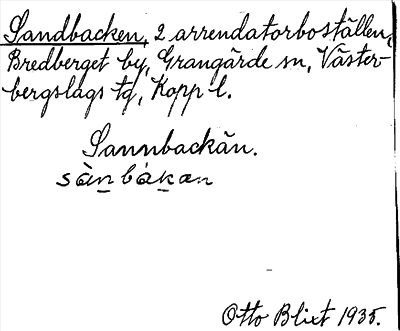 Sandbacken, 2 arrendatorboställen,
Bredberget by, Grangärde sn, Väster-
bergslags tg, Kopp l.
Sannbackän.
sànbákan
Otto Blixt 1935.